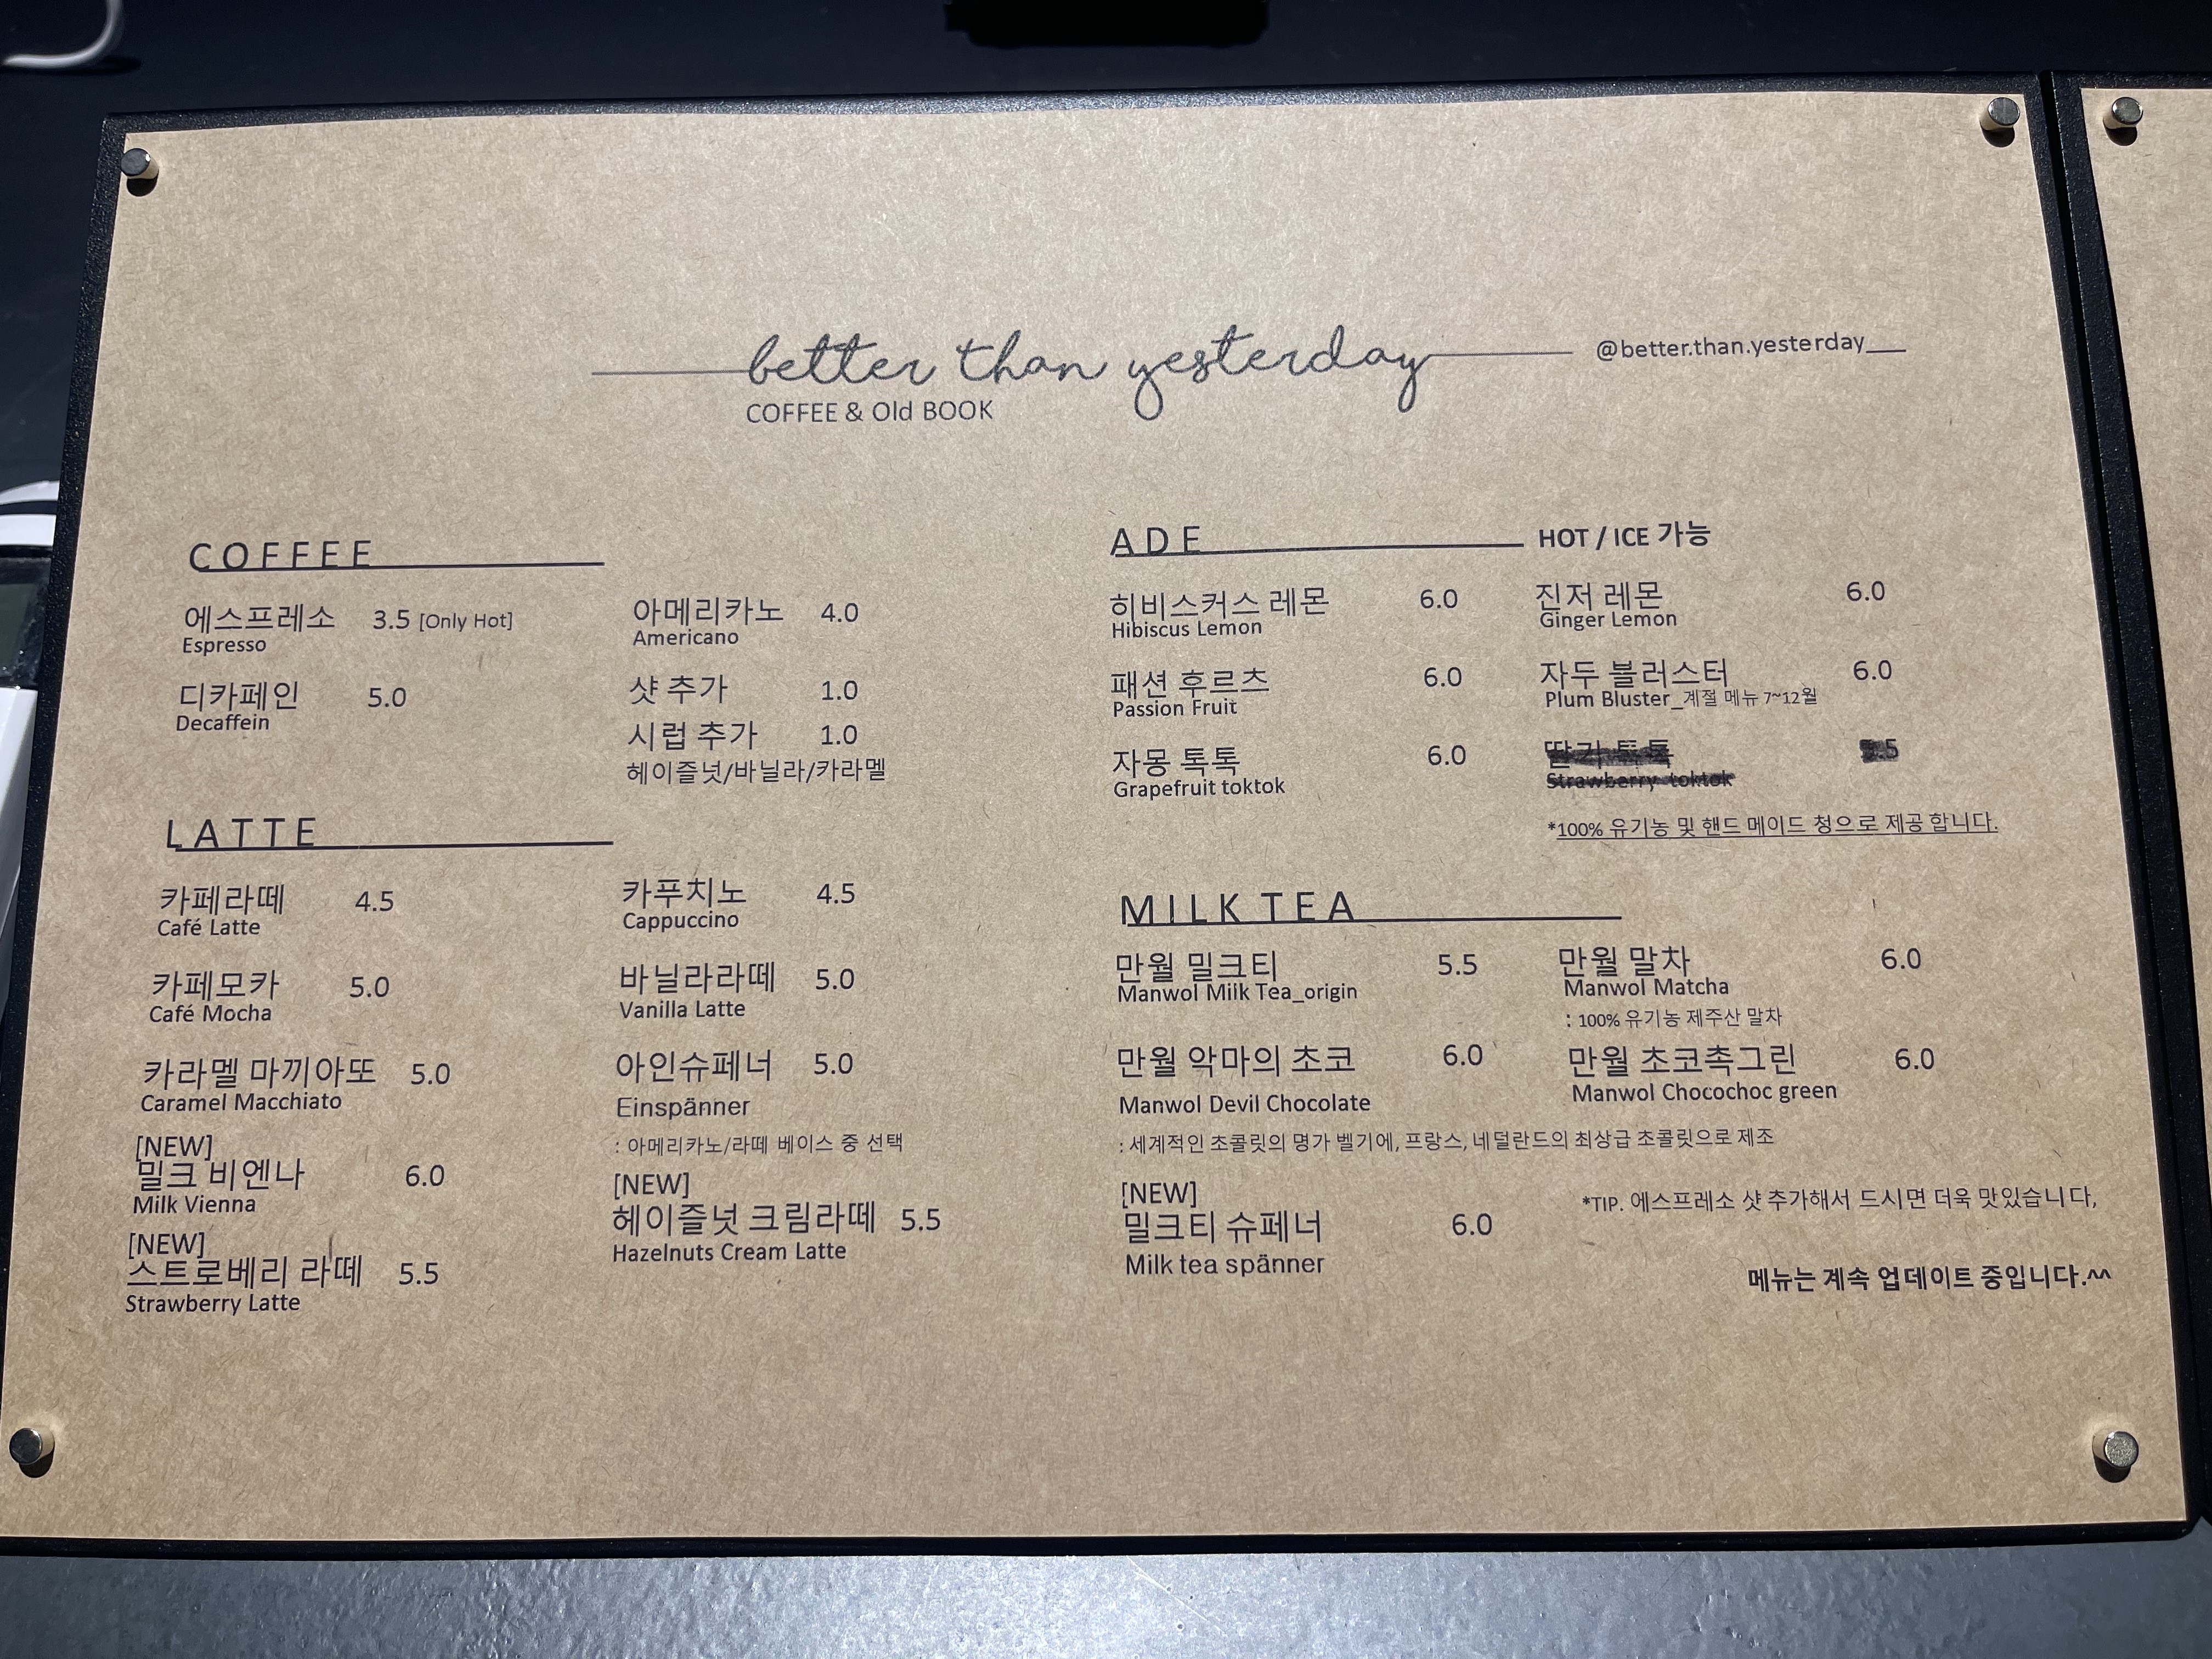 better than yesterday
@better.than.yesterday__
COFFEE & Old BOOK
COFFEE
에스프레소 3.5 [Only Hot]
Espresso
디카페인 5.0
Decaffein
아메리카노 4.0
Americano
샷 추가 1.0
시럽 추가 1.0
헤이즐넛/바닐라/카라멜
LATTE
카페라떼 4.5
Café Latte
카페모카 5.0
Café Mocha
카라멜 마끼아또 5.0
Caramel Macchiato
[NEW]
밀크 비엔나 6.0
Milk Vienna
[NEW]
스트로베리 라떼 5.5
Strawberry Latte
카푸치노 4.5
Cappuccino
바닐라라떼 5.0
Vanilla Latte
아인슈페너 5.0
Einspänner
: 아메리카노/라떼 베이스 중 선택
[NEW]
헤이즐넛 크림라떼 5.5
Hazelnuts Cream Latte
ADE HOT / ICE 가능
히비스커스 레몬 6.0
Hibiscus Lemon
패션 후르츠 6.0
Passion Fruit
자몽 톡톡 6.0
Grapefruit toktok
진저 레몬 6.0
Ginger Lemon
자두 블러스터 6.0
Plum Bluster_계절 메뉴 7~12월
Strawberry toktok
*100% 유기농 및 핸드 메이드 청으로 제공 합니다.
MILK TEA
만월 밀크티 5.5
Manwol Milk Tea_origin
만월 말차 6.0
Manwol Matcha
: 100% 유기농 제주산 말차
만월 악마의 초코 6.0
Manwol Devil Chocolate
만월 초코촉그린 6.0
Manwol Chocochoc green
: 세계적인 초콜릿의 명가 벨기에, 프랑스, 네덜란드의 최상급 초콜릿으로 제조
[NEW]
밀크티 슈페너 6.0
Milk tea spänner
*TIP. 에스프레소 샷 추가해서 드시면 더욱 맛있습니다,
메뉴는 계속 업데이트 중입니다.^^